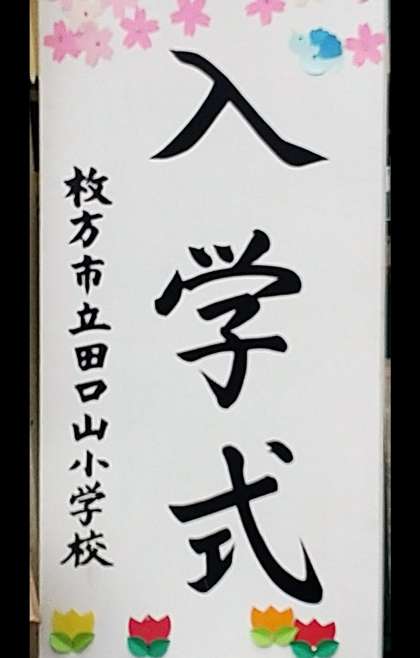 入学式
枚方市立田口山小学校